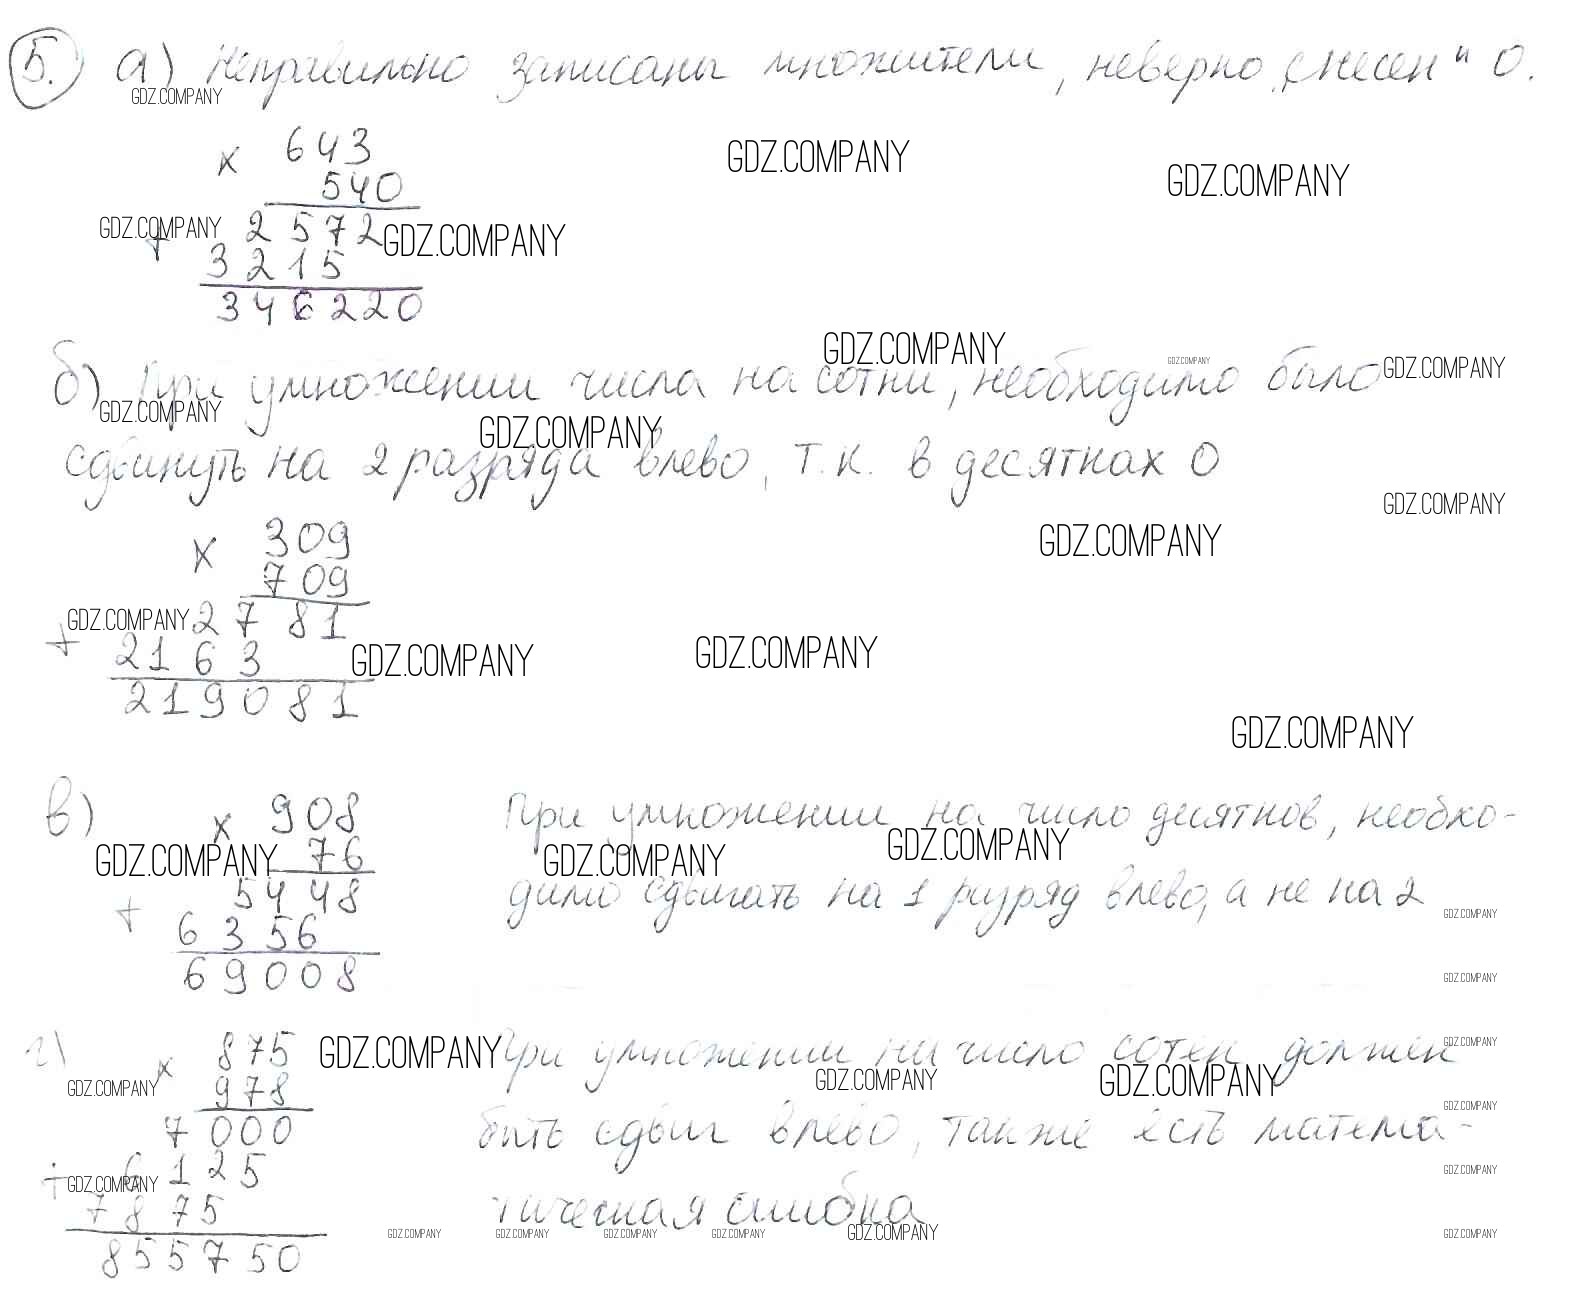 5. а) Неправильно записаны множители, неверно „снесен" 0.
GDZ.COMPANY
× 643
GDZ.COMPANY
540
GDZ.COMPANY
GDZ.COMPANY + 2572 GDZ.COMPANY
3215
346220
GDZ.COMPANY GDZ.COMPANY
б) При умножении числа на сотни, необходимо было GDZ.COMPANY
GDZ.COMPANY GDZ.COMPANY
сдвинуть на 2 разряда влево, т.к. в десятках 0
GDZ.COMPANY
× 309 GDZ.COMPANY
709
GDZ.COMPANY 2781
+ 2163 GDZ.COMPANY GDZ.COMPANY
219081
GDZ.COMPANY
в) × 908 При умножении на число десятков, необхо-
GDZ.COMPANY 76 GDZ.COMPANY GDZ.COMPANY
+ 5448 димо сдвигать на 1 разряд влево, а не на 2
GDZ.COMPANY
6356
69008 GDZ.COMPANY
г) × 875 GDZ.COMPANY При умножении на число сотен должен GDZ.COMPANY
GDZ.COMPANY 978 GDZ.COMPANY GDZ.COMPANY
GDZ.COMPANY
7000 быть сдвиг влево, также есть матема-
+ GDZ.COMPANY 6125 GDZ.COMPANY
7875 тическая ошибка
GDZ.COMPANY GDZ.COMPANY GDZ.COMPANY GDZ.COMPANY GDZ.COMPANY GDZ.COMPANY
855750